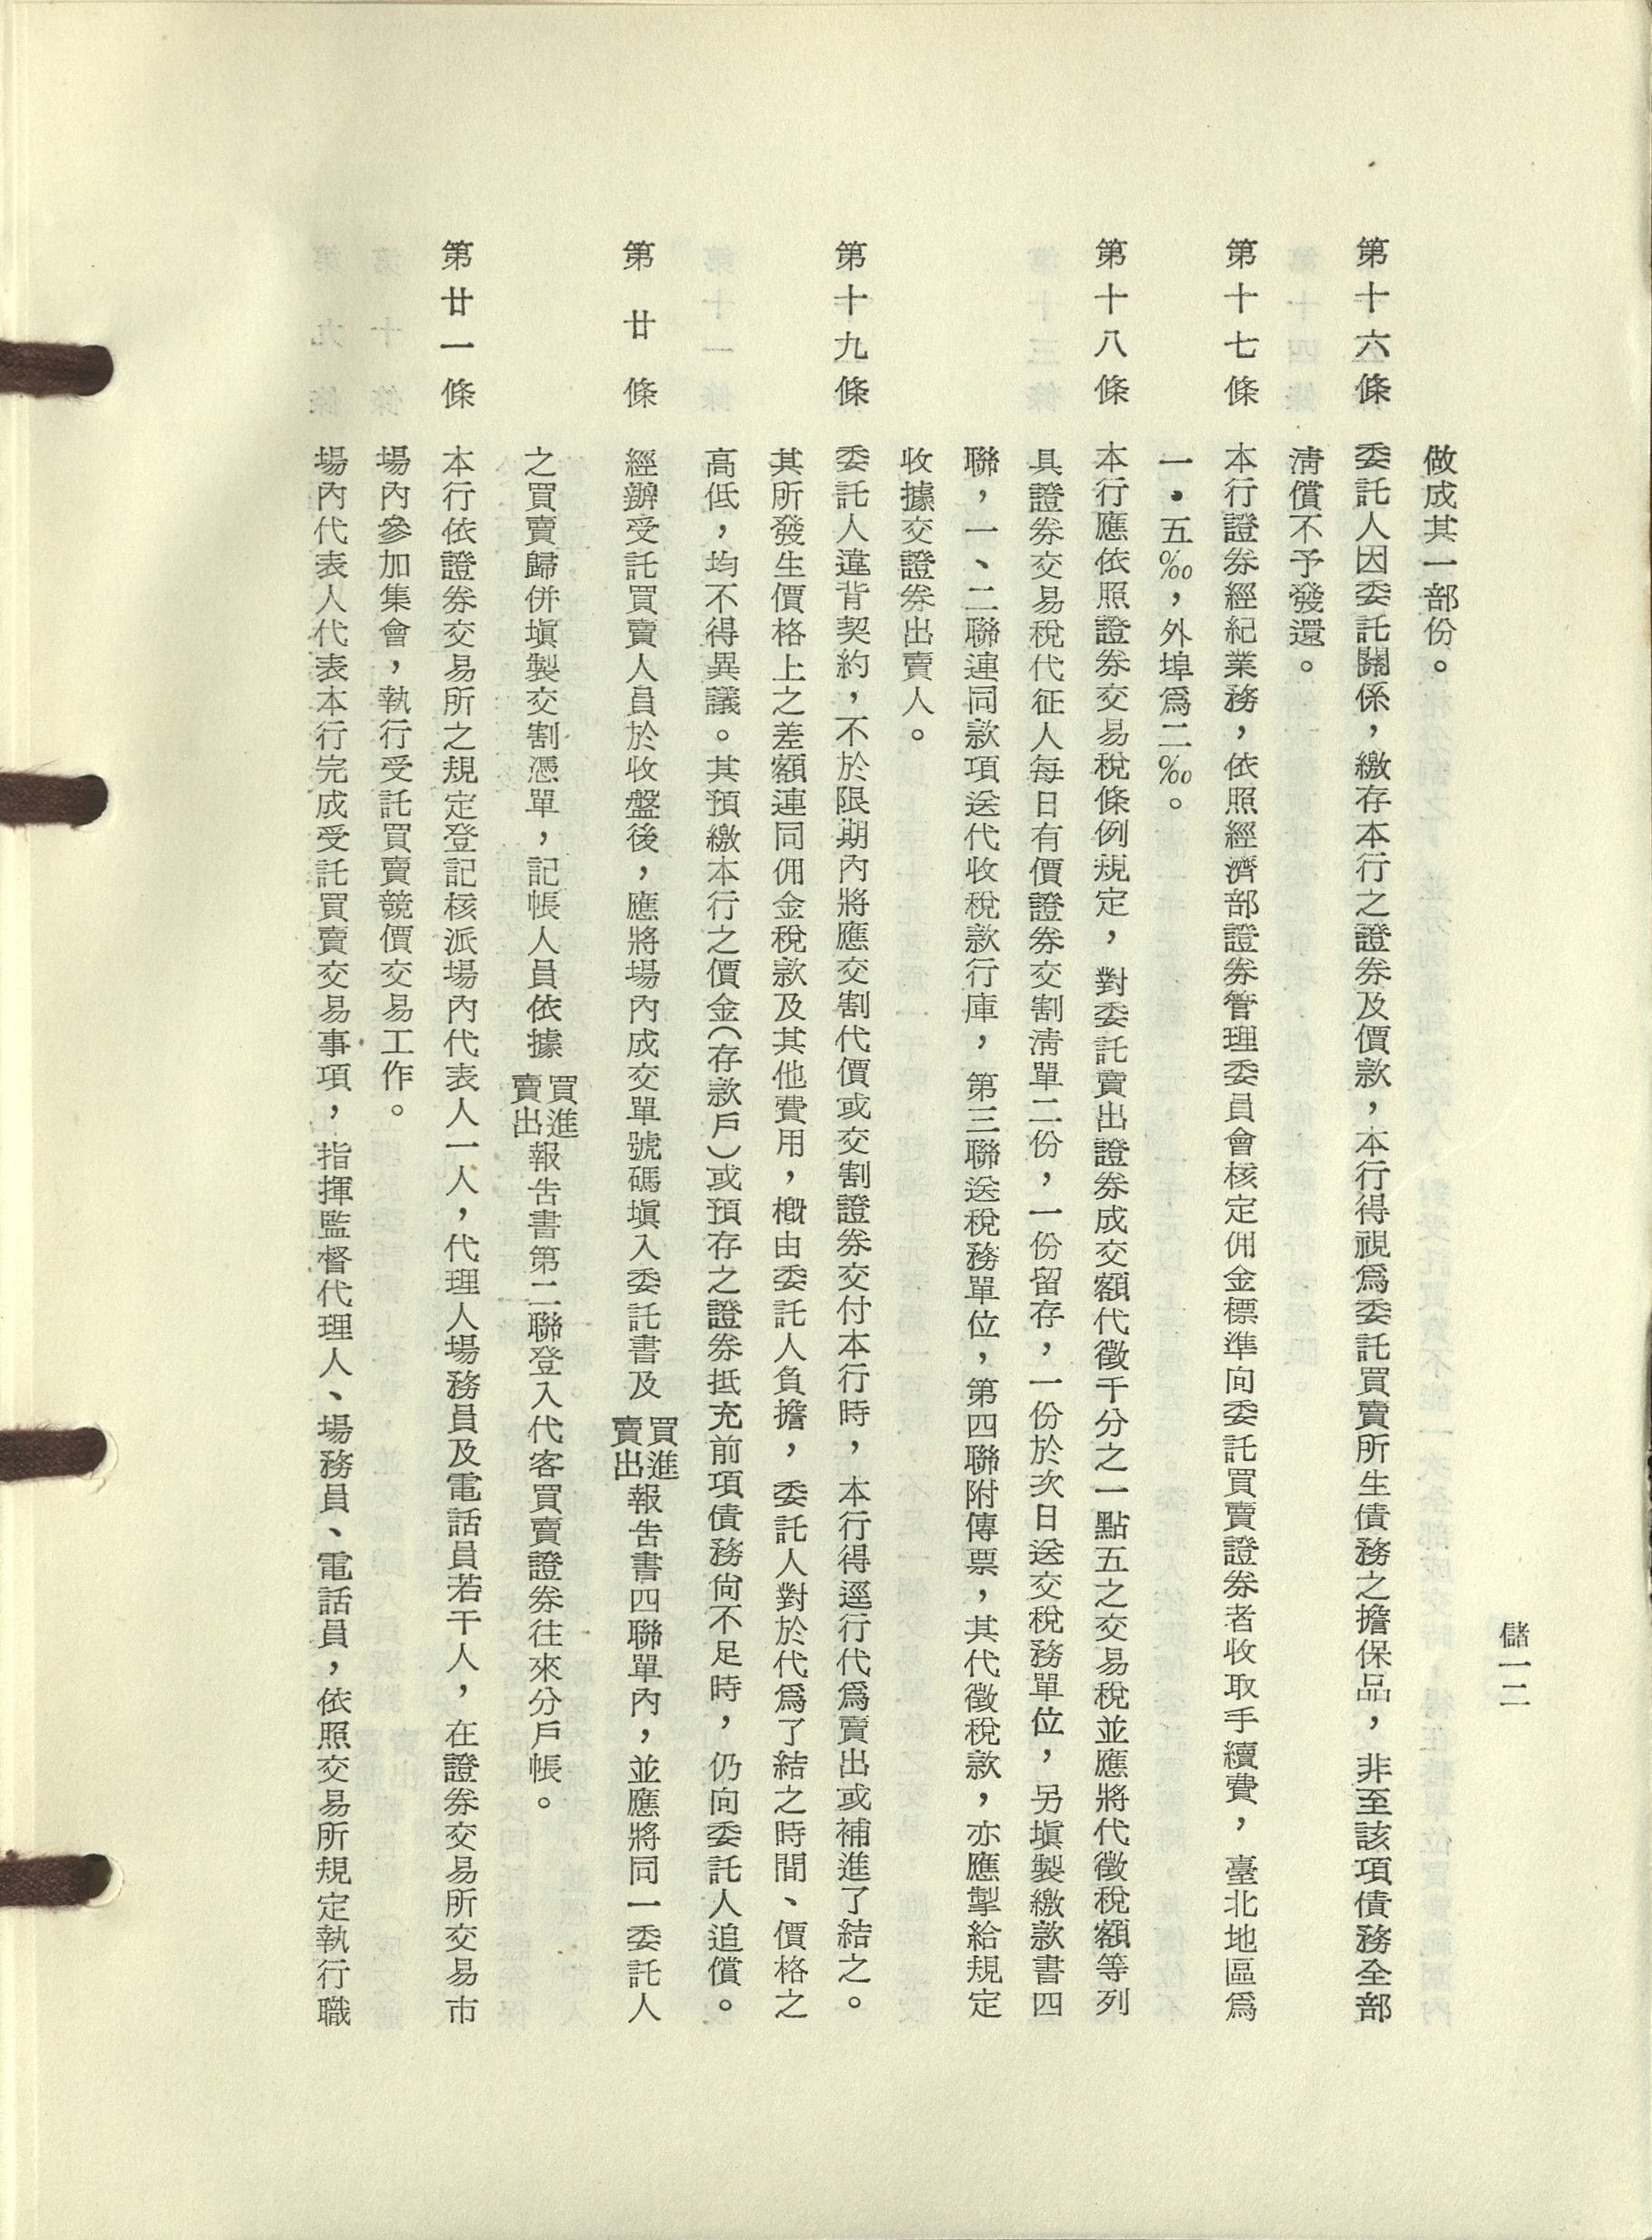 儲一二
做成其一部份。
第十六條　委託人因委託關係，繳存本行之證券及價款，本行得視爲委託買賣所生債務之擔保品，非至該項債務全部
淸償不予發還。
第十七條　本行證券經紀業務，依照經濟部證券管理委員會核定佣金標準向委託買賣證券者收取手續費，臺北地區爲
一•五‰，外埠爲二‰。
第十八條　本行應依照證券交易稅條例規定，對委託賣出證券成交額代徵千分之一點五之交易稅並應將代徵稅額等列
具證券交易稅代征人每日有價證券交割淸單二份，一份留存，一份於次日送交稅務單位，另塡製繳款書四
聯，一、二聯連同款項送代收稅款行庫，第三聯送稅務單位，第四聯附傳票，其代徵稅款，亦應掣給規定
收據交證券出賣人。
第十九條　委託人違背契約，不於限期內將應交割代價或交割證券交付本行時，本行得逕行代爲賣出或補進了結之。
其所發生價格上之差額連同佣金稅款及其他費用，槪由委託人負擔，委託人對於代爲了結之時間、價格之
高低，均不得異議。其預繳本行之價金（存款戶）或預存之證券抵充前項債務尙不足時，仍向委託人追償。
第廿條　經辦受託買賣人員於收盤後，應將場內成交單號碼塡入委託書及買進賣出報告書四聯單內，並應將同一委託人
之買賣歸併塡製交割憑單，記帳人員依據買進賣出報告書第二聯登入代客買賣證券往來分戶帳。
第廿一條　本行依證券交易所之規定登記核派場內代表人一人，代理人場務員及電話員若干人，在證券交易所交易市
場內參加集會，執行受託買賣競價交易工作。
場內代表人代表本行完成受託買賣交易事項，指揮監督代理人、場務員、電話員，依照交易所規定執行職